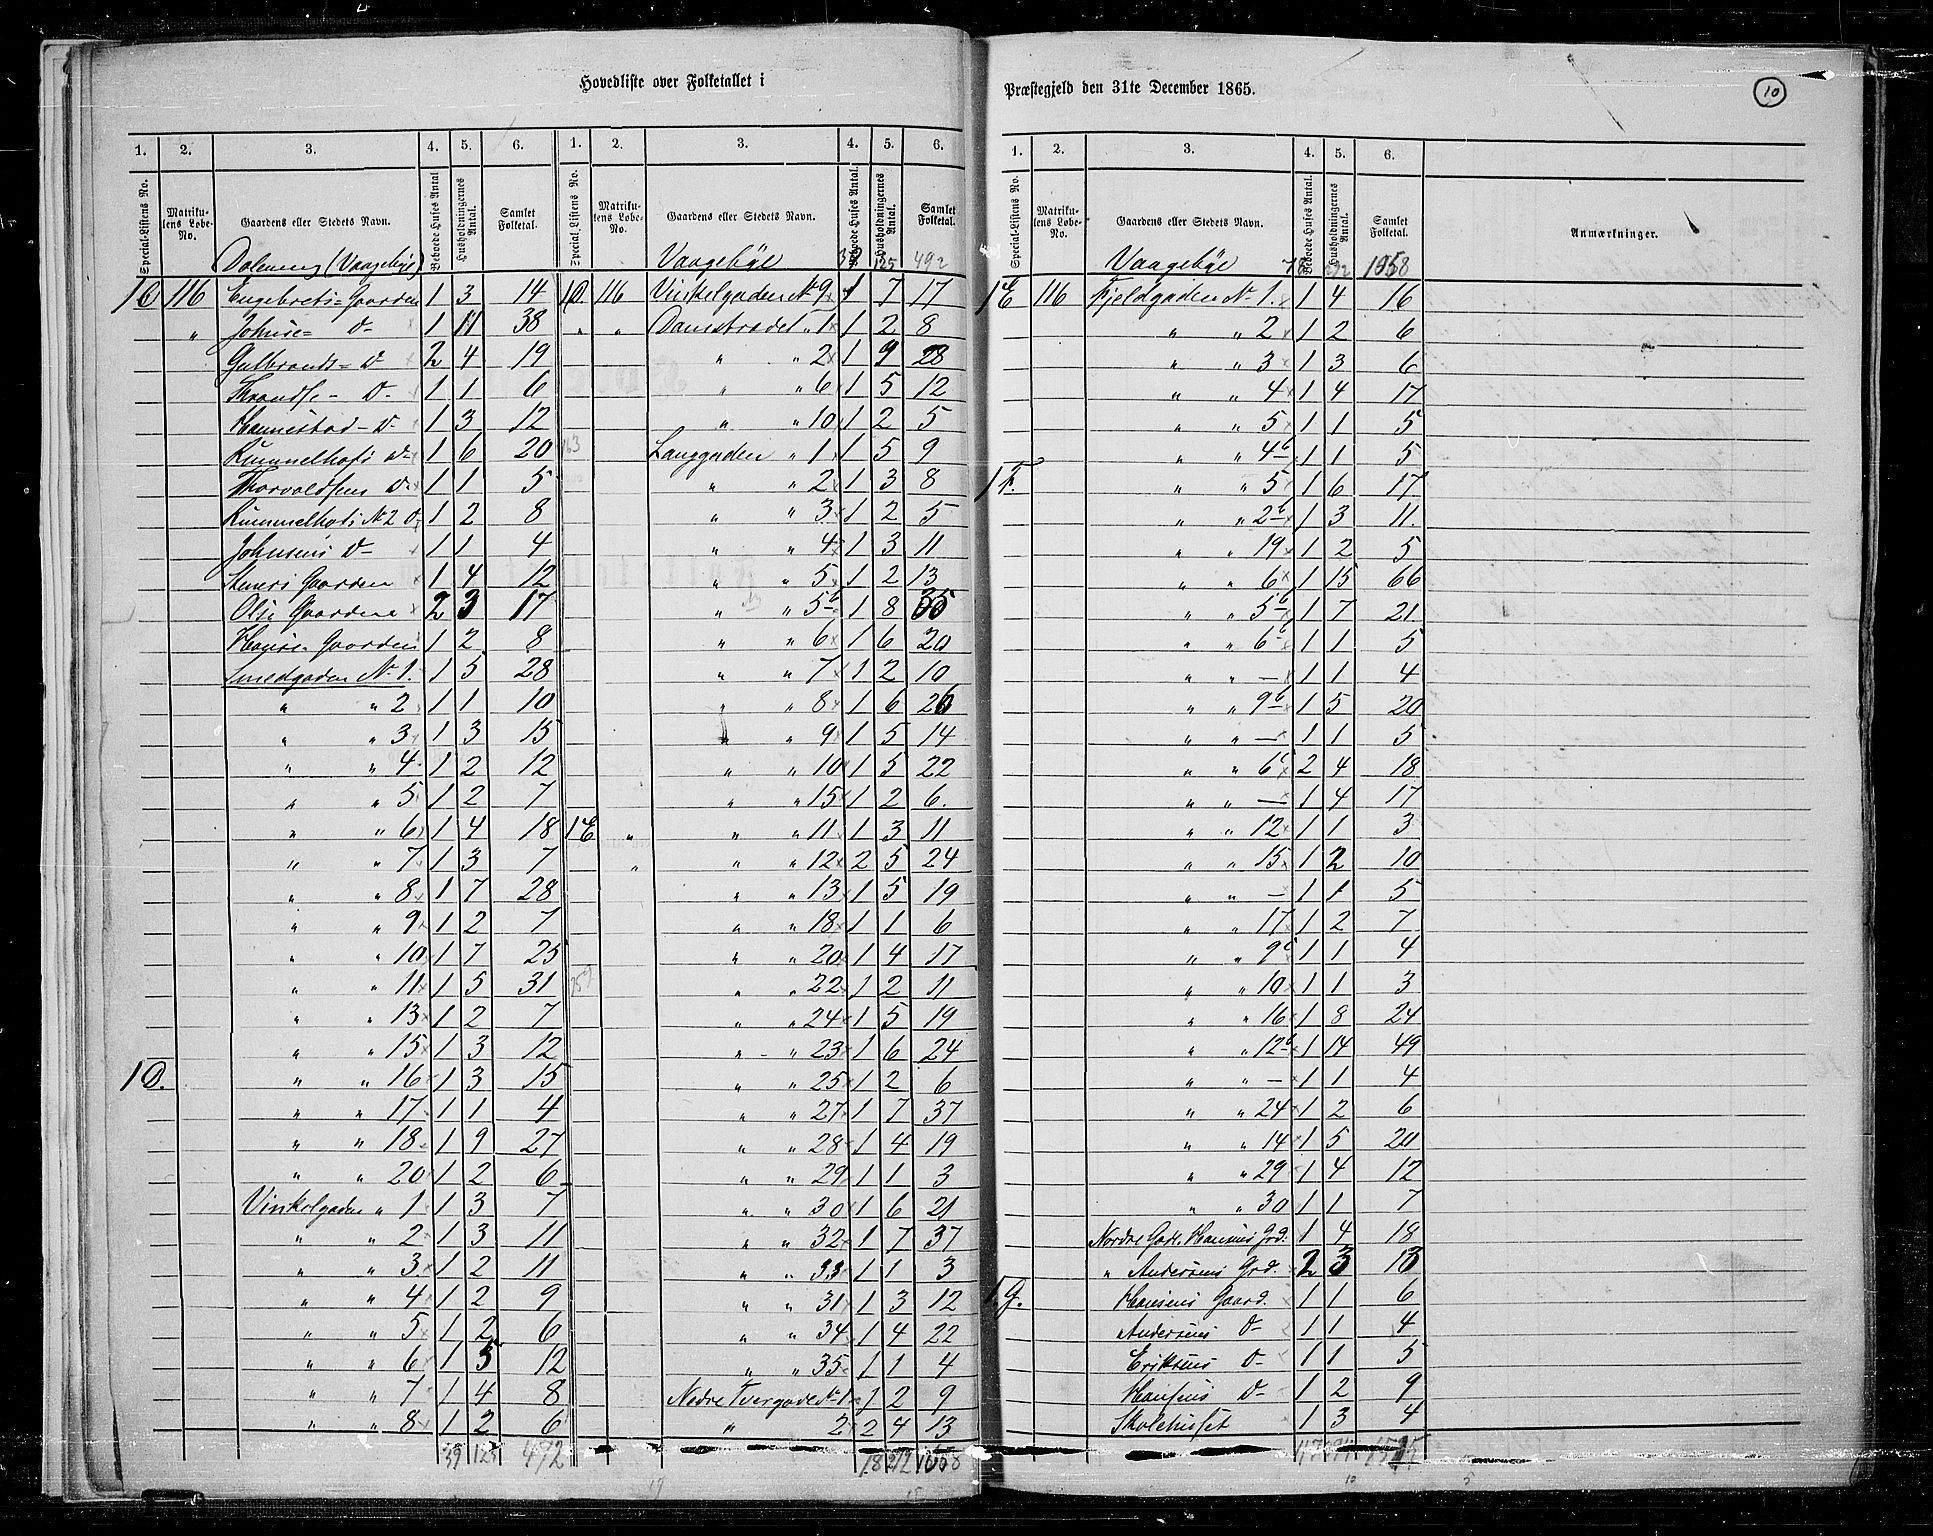 Hovedliste over Folketallet i
Præstegjeld den 31te December 1865.
10
1. 2. 3. 4. 5. 6.
Special-Listens No. Matrikulens Løbe-No. Gaardens eller Stedets Navn. Beboede Huses Antal. Husholdningernes Antal. Samlet Folketal.
(Vaagebye)
1C 116 Engebrets=Gaarden 1 3 14
" Johnse= D- 1 11 38
Gulbrands= D 2 4 19
Thrandse- D- 1 1 6
Hannestad- D- 1 3 12
Rummelhofs D- 1 6 20
Thorvaldsens D- 1 1 5
Rummelhofs No 2 D 1 2 8
Johnsens D- 1 1 4
Gaarden 1 4 12
Olse Gaarden 2 3 17
Hanse- Gaarden 1 2 8
Smedgaden No 1. 1 5 28
" " 2 1 1 10
" " 3 1 3 15
" " 4 1 2 12
" " 5 1 2 7
" " 6 1 4 18
" " 7 1 3 7
" " 8 1 7 28
" " 9 1 2 7
" " 10 1 7 25
" " 11 1 5 31
" " 13 1 2 7
" " 15 1 3 12
1D. " " 16 1 3 15
" " 17 1 1 4
" " 18 1 9 27
" " 20 1 2 6
Vinkelgaden " 1 1 3 7
" " 2 1 3 11
" " 3 1 2 11
" " 4 1 2 9
" " 5 1 2 6
" " 6 1 5 12
" " 7 1 4 8
" " 8 1 2 6
39 125 472
1. 2. 3. 4. 5. 6.
Special-Listens No. Matrikulens Løbe-No. Gaardens eller Stedets Navn. Beboede Huses Antal. Husholdningernes Antal. Samlet Folketal.
Vaagebye 39 125 492
1D 116 Vinkelgaden No 9 1 7 17
" " Damstrædet " 1 1 2 8
" " 2 1 9 28
" " 6 1 5 12
" " 10 1 2 5
163 Langgaden " 1 1 5 9
" " 2 1 3 8
" " 3 1 2 5
" " 4 1 3 11
" " 5 1 2 13
" " 5b 1 8 35
" " 6 1 6 20
" " 7 1 2 10
" " 8 1 6 26
" " 9 1 5 14
" " 10 1 5 22
" " 15 1 2 6.
1E " " " 11 1 3 11
" " " 12 2 5 24
" " 13 1 5 19
" " 18 1 1 6
" " 20 1 4 17
259 " " 22 1 2 11
" " 24 1 5 19
" " 23 1 6 24
" " 25 1 2 6
" " 27 1 7 37
" " 28 1 4 19
" " 29 1 1 3
" " 30 1 6 21
" " 32 1 7 37
" " 33 1 1 3
" " 31 1 3 12
" " 34 1 4 22
" " 35 1 1 4
Nedre Tvergade No 1 1 2 9
" 2 2 4 13
1058
1. 2. 3. 4. 5. 6.
Special-Listens No. Matrikulens Løbe-No. Gaardens eller Stedets Navn. Beboede Huses Antal. Husholdningernes Antal. Samlet Folketal. Anmærkninger.
Vaagebye 78 272 1058
1E 116 Fjeldgaden No 1. 1 4 16
" " 2 1 2 6
" " 3 1 3 6
" " 4 1 4 17
" " 5 1 1 5
" " 4b 1 1 5
1F. " " 5 1 6 17
" " 2b 1 3 11.
" " 19 1 2 5
" " 6 1 15 66
" " 5b 1 7 21
" " 6b 1 1 5
" " — 1 1 4
" " 9b 1 5 20
" " — 1 1 5
" " 6c 2 4 18
" " — 1 4 17
" " 12 1 1 3
" " 15 1 2 10
" " — 1 1 5
" " 17 1 2 7
" " 9c 1 1 4
" " 10 1 1 3
" " 16 1 8 24
" " 12b 1 14 49
" " — 1 1 4
" " 24 1 2 6
" " 14 1 5 20
" " 29 1 4 12
" " 30 1 1 7
Nordre Gade. Hansens Grd. 1 4 18
" Andersens Grd. 2 3 13
1G. Hansens Gaard. 1 1 6
Andersens D- 1 1 4
Eriksens D- 1 1 5
Hansens D- 1 2 9
Skolehuset 1 3 4